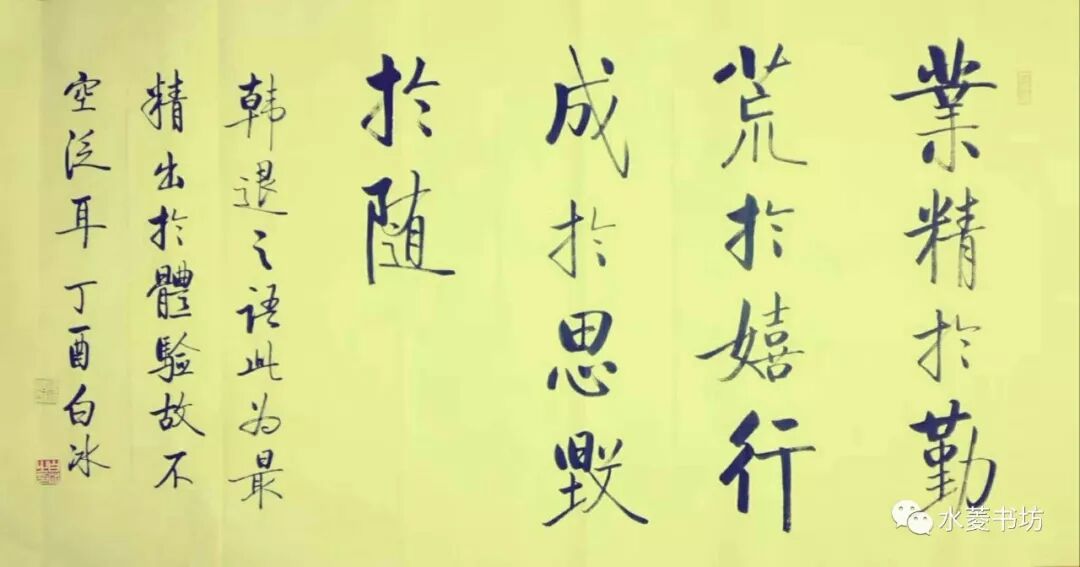 業精於勤
荒於嬉行
成於思毀
於随
韩退之语此为最
精出於體驗故不
空泛耳丁酉白冰
水菱书坊